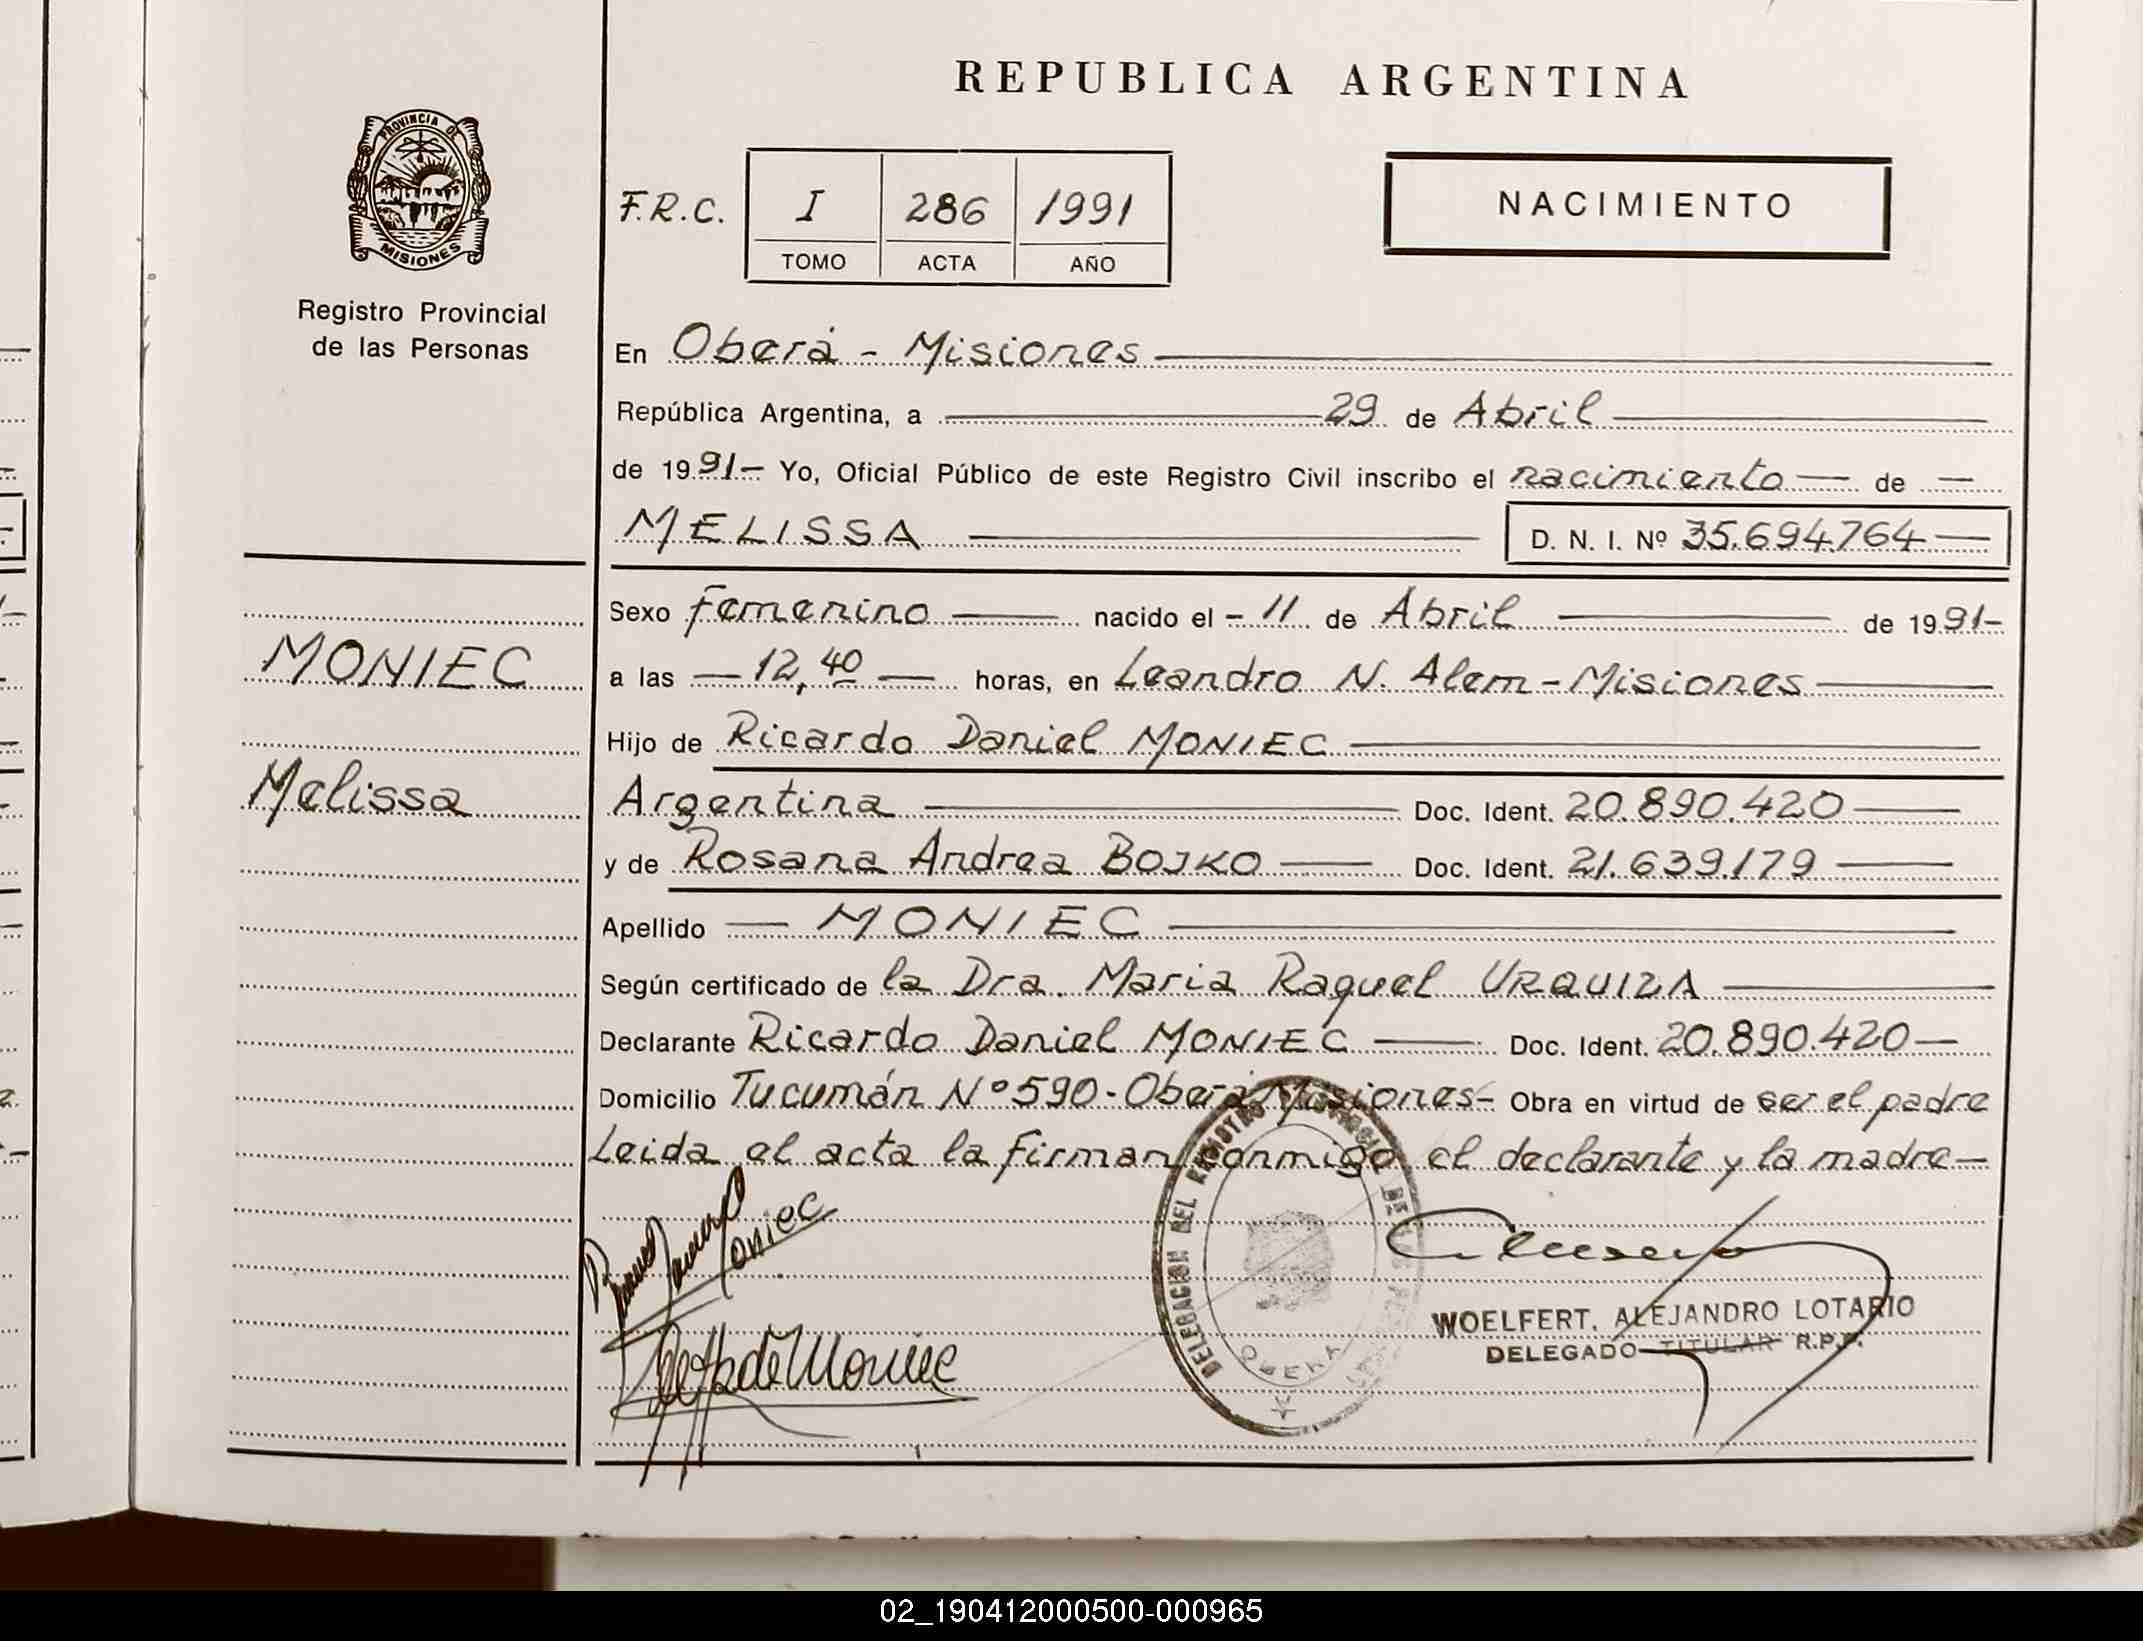 REPUBLICA ARGENTINA
PROVINCIA DE
MISIONES
Registro Provincial
de las Personas
F.R.C. I 286 1991
TOMO ACTA AÑO
NACIMIENTO
En Oberá - Misiones
República Argentina, a 29 de Abril
de 1991- Yo, Oficial Público de este Registro Civil inscribo el nacimiento — de —
MELISSA D. N. I. Nº 35.694.764
Sexo femenino nacido el - 11 de Abril de 1991-
MONIEC
a las — 12,40 — horas, en Leandro N. Alem - Misiones
Hijo de Ricardo Daniel MONIEC
Melissa
Argentina Doc. Ident. 20.890.420
y de Rosana Andrea BOJKO Doc. Ident. 21.639.179
Apellido — MONIEC
Según certificado de la Dra. Maria Raquel URQUIZA
Declarante Ricardo Daniel MONIEC Doc. Ident. 20.890.420
Domicilio Tucumán Nº 590 - Oberá Misiones - Obra en virtud de ser el padre
Leida el acta la firman conmigo el declarante y la madre
Moniec
de Moniec
DELEGACION DEL REGISTRO PROVINCIAL DE LAS PERSONAS
OBERA
WOELFERT, ALEJANDRO LOTARIO
DELEGADO TITULAR R.P.P.
02_190412000500-000965